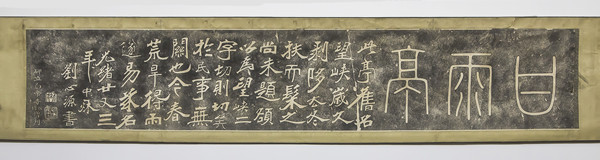 甘雨亭
此亭舊名
望峽歲久
剝陊去冬
扶而髹之
尚未題額
以為望峽二
字切則切矣
於民事無
關也今春
荒旱得雨
遂易茲名
光緒廿又三
年中秋
劉心源書